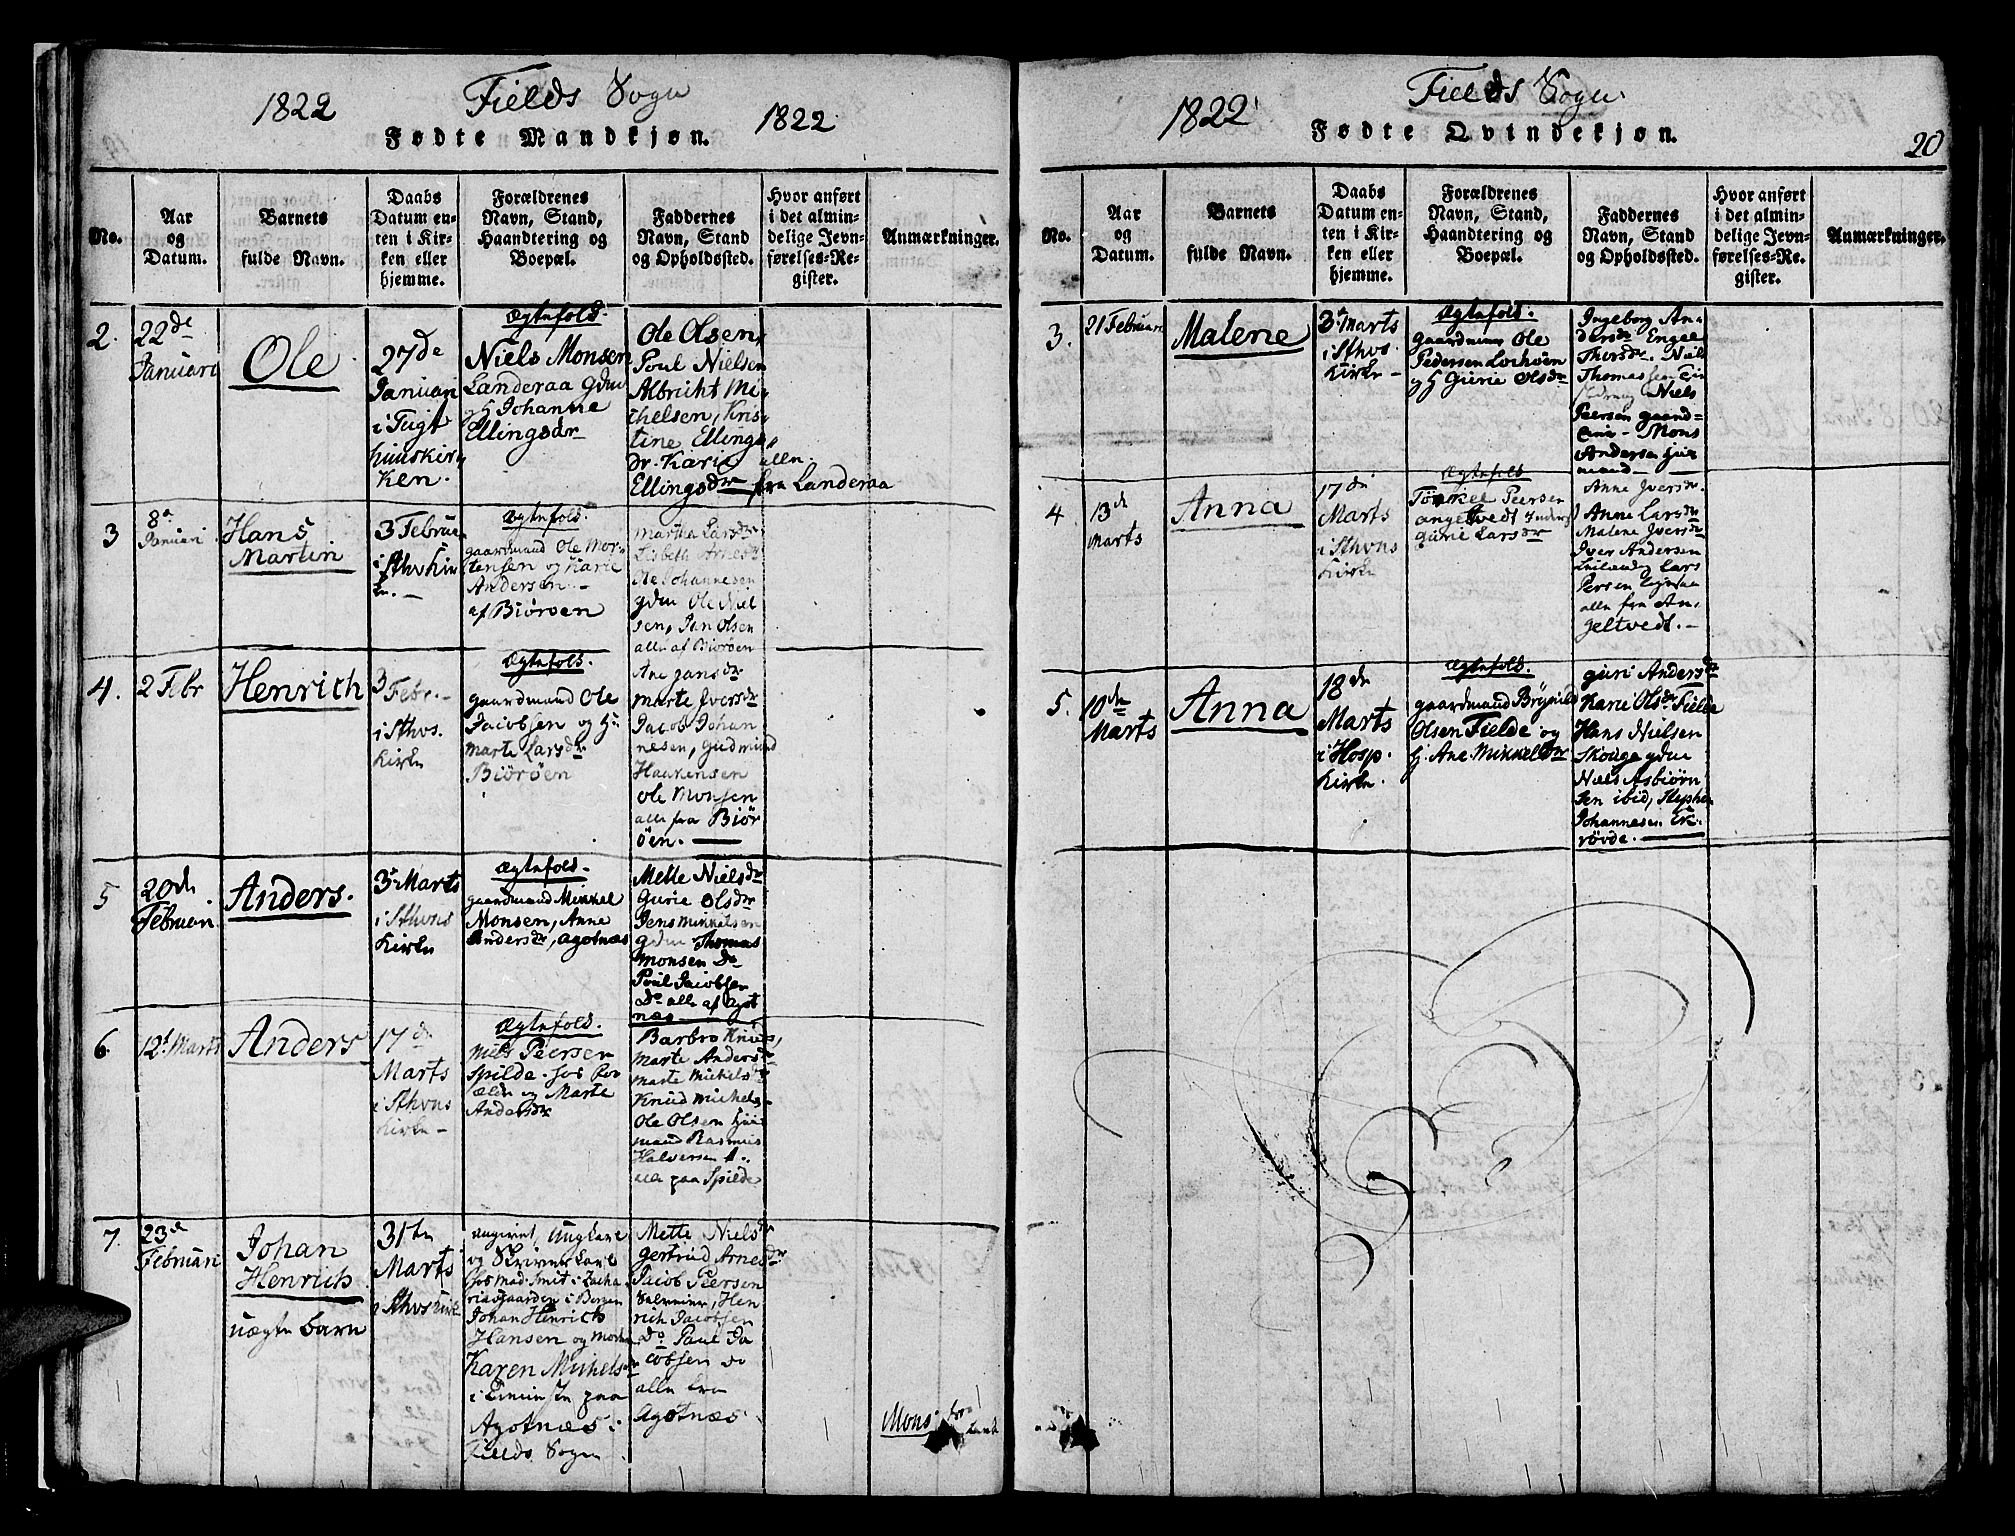 1822 Fields Sogn 1822
Fødte Mandkjøn.
No.
Aar
og
Datum.
Barnets
fulde Navn.
Daabs
Datum en-
ten i Kir-
ken eller
hjemme.
Forældrenes
Navn, Stand,
Haandtering og
Boepæl.
Faddernes
Navn, Stand
og Opholdssted.
Hvor anført
i det almin-
delige Jevn-
førelses-Re-
gister.
Anmærkninger.
2.
22de
Januari
Ole
27de
Januari
i Tugt
huuskir
ken.
Ægtefold.
Niels Monsen
Landeraa gdm
og H Johanne
Ellingsdr
Ole Olsen,
Poul Nielsen
Albricht Mi-
chelsen, Kris-
tine Ellings
dr. Karie alle
Ellingsdr fra Landeraa
3
8a
Januari
Hans
Martin
3 Februar
i Sthv Kir
ke.
Ægtefold.
gaardmand Ole Mor-
tensen og Karie
Andersen.
af Biörøen
Martha Larsdr
Lisbeth Arnesdr
Ole Johannesen
gdm Ole Niel
sen, Jan Olsen
alle af Biöröen
4.
2 Febr
Henrich
3
Febr.
i Sthvs.
Kirke
Ægtefold.
gaardmand Ole
Jacobsen og H.
Marte Larsdr
Biöröen
Ane Jansdr
Marte Iversdr
Jacob Johan
nesen, Gudmund
Haakensen
Ole Monsen
alle fra Biör
öen.
5
20de
Februari
Anders.
3. Marts
i Sthvns
Kirke
Ægtefold.
gaardmand Mikkel
Monsen, Anne
Andersdr, Agotnæs
Mette Nielsdr
Gurie Olsdr
Jens Mikkelsen
gdm Thomas
Monsen Do
Poul Jacobsen
Do alle af Agot
næs
6.
12t Marts
Anders
17de
Marts
i Sthvns
Kirke
Ægtefold.
Niels Peersen
Spilde. hos For
ældre og Marte
Andersdr
Barbro Knuds,
Marte Andersdr
Marte Mickelsdr
Knud Michels.
Ole Olsen Huus
mand Rasmus
Halversen A.
lle paa Spilde
7.
23de
Februari
Johan
Henrich
uægte barn
31te
Marts
i Sthvs Kirke
angivet, Ungkarl
og Skriver Karl
hos Mad. Smit i Zacha
riasgaarden i Bergen
Johan Henrich
Hansen og Moder
Karen Michelsdr
i Tieniste paa
Agotnæs i
Fields Sogn
Mette Nielsdr
Gertrud Arnesdr
Jacob Peersen
Hen
rich Jacobsen
Do Paul Ja
cobsen do
alle fra
Agotnæs
Mons
1822 Fields Sogn
Fødte Qvindekjøn.
20
No.
Aar
og
Datum.
Barnets
fulde Navn.
Daabs
Datum en-
ten i Kir-
ken eller
hjemme.
Forældrenes
Navn, Stand,
Haandtering og
Boepæl.
Faddernes
Navn, Stand
og Opholdssted.
Hvor anført
i det almin-
delige Jevn-
førelses-Re-
gister.
Anmærkninger.
3.
21 Februari
Malene
3. Marts
i Sthvs.
Kirke
Ægtefold.
Gaardmand Ole
Pedersen
og H Gurie Olsdr
Ingeborg An-
dersdr Engel
Thorsdr. Niels
Thomassen
Niels
Peersen gaard
Mons
Andersen Huus
mand
4
13de
Marts
Anna
17de
Marts
i Sthvns
Kirke
Ægtefold
Peersen
Angeltvedt
Gurie Larsdr
Anne Iversdr.
Anne Larsdr
Malene Iversdr
Iver Andersen
Lars
Persen
alle fra An,
geltvedt.
5.
10de
Marts
Anna
18de
Marts
i Hosp.
Kirke.
Ægtefold.
gaardmand Brynild
Olsen Fielde og
H. Ane Mikkelsdr
Guri Andersdr
Karie Olsdr Fielde
Hans Nielsen
Skouge gdm
Niels Asbiörn
sen ibid, Stephen
Johannesen